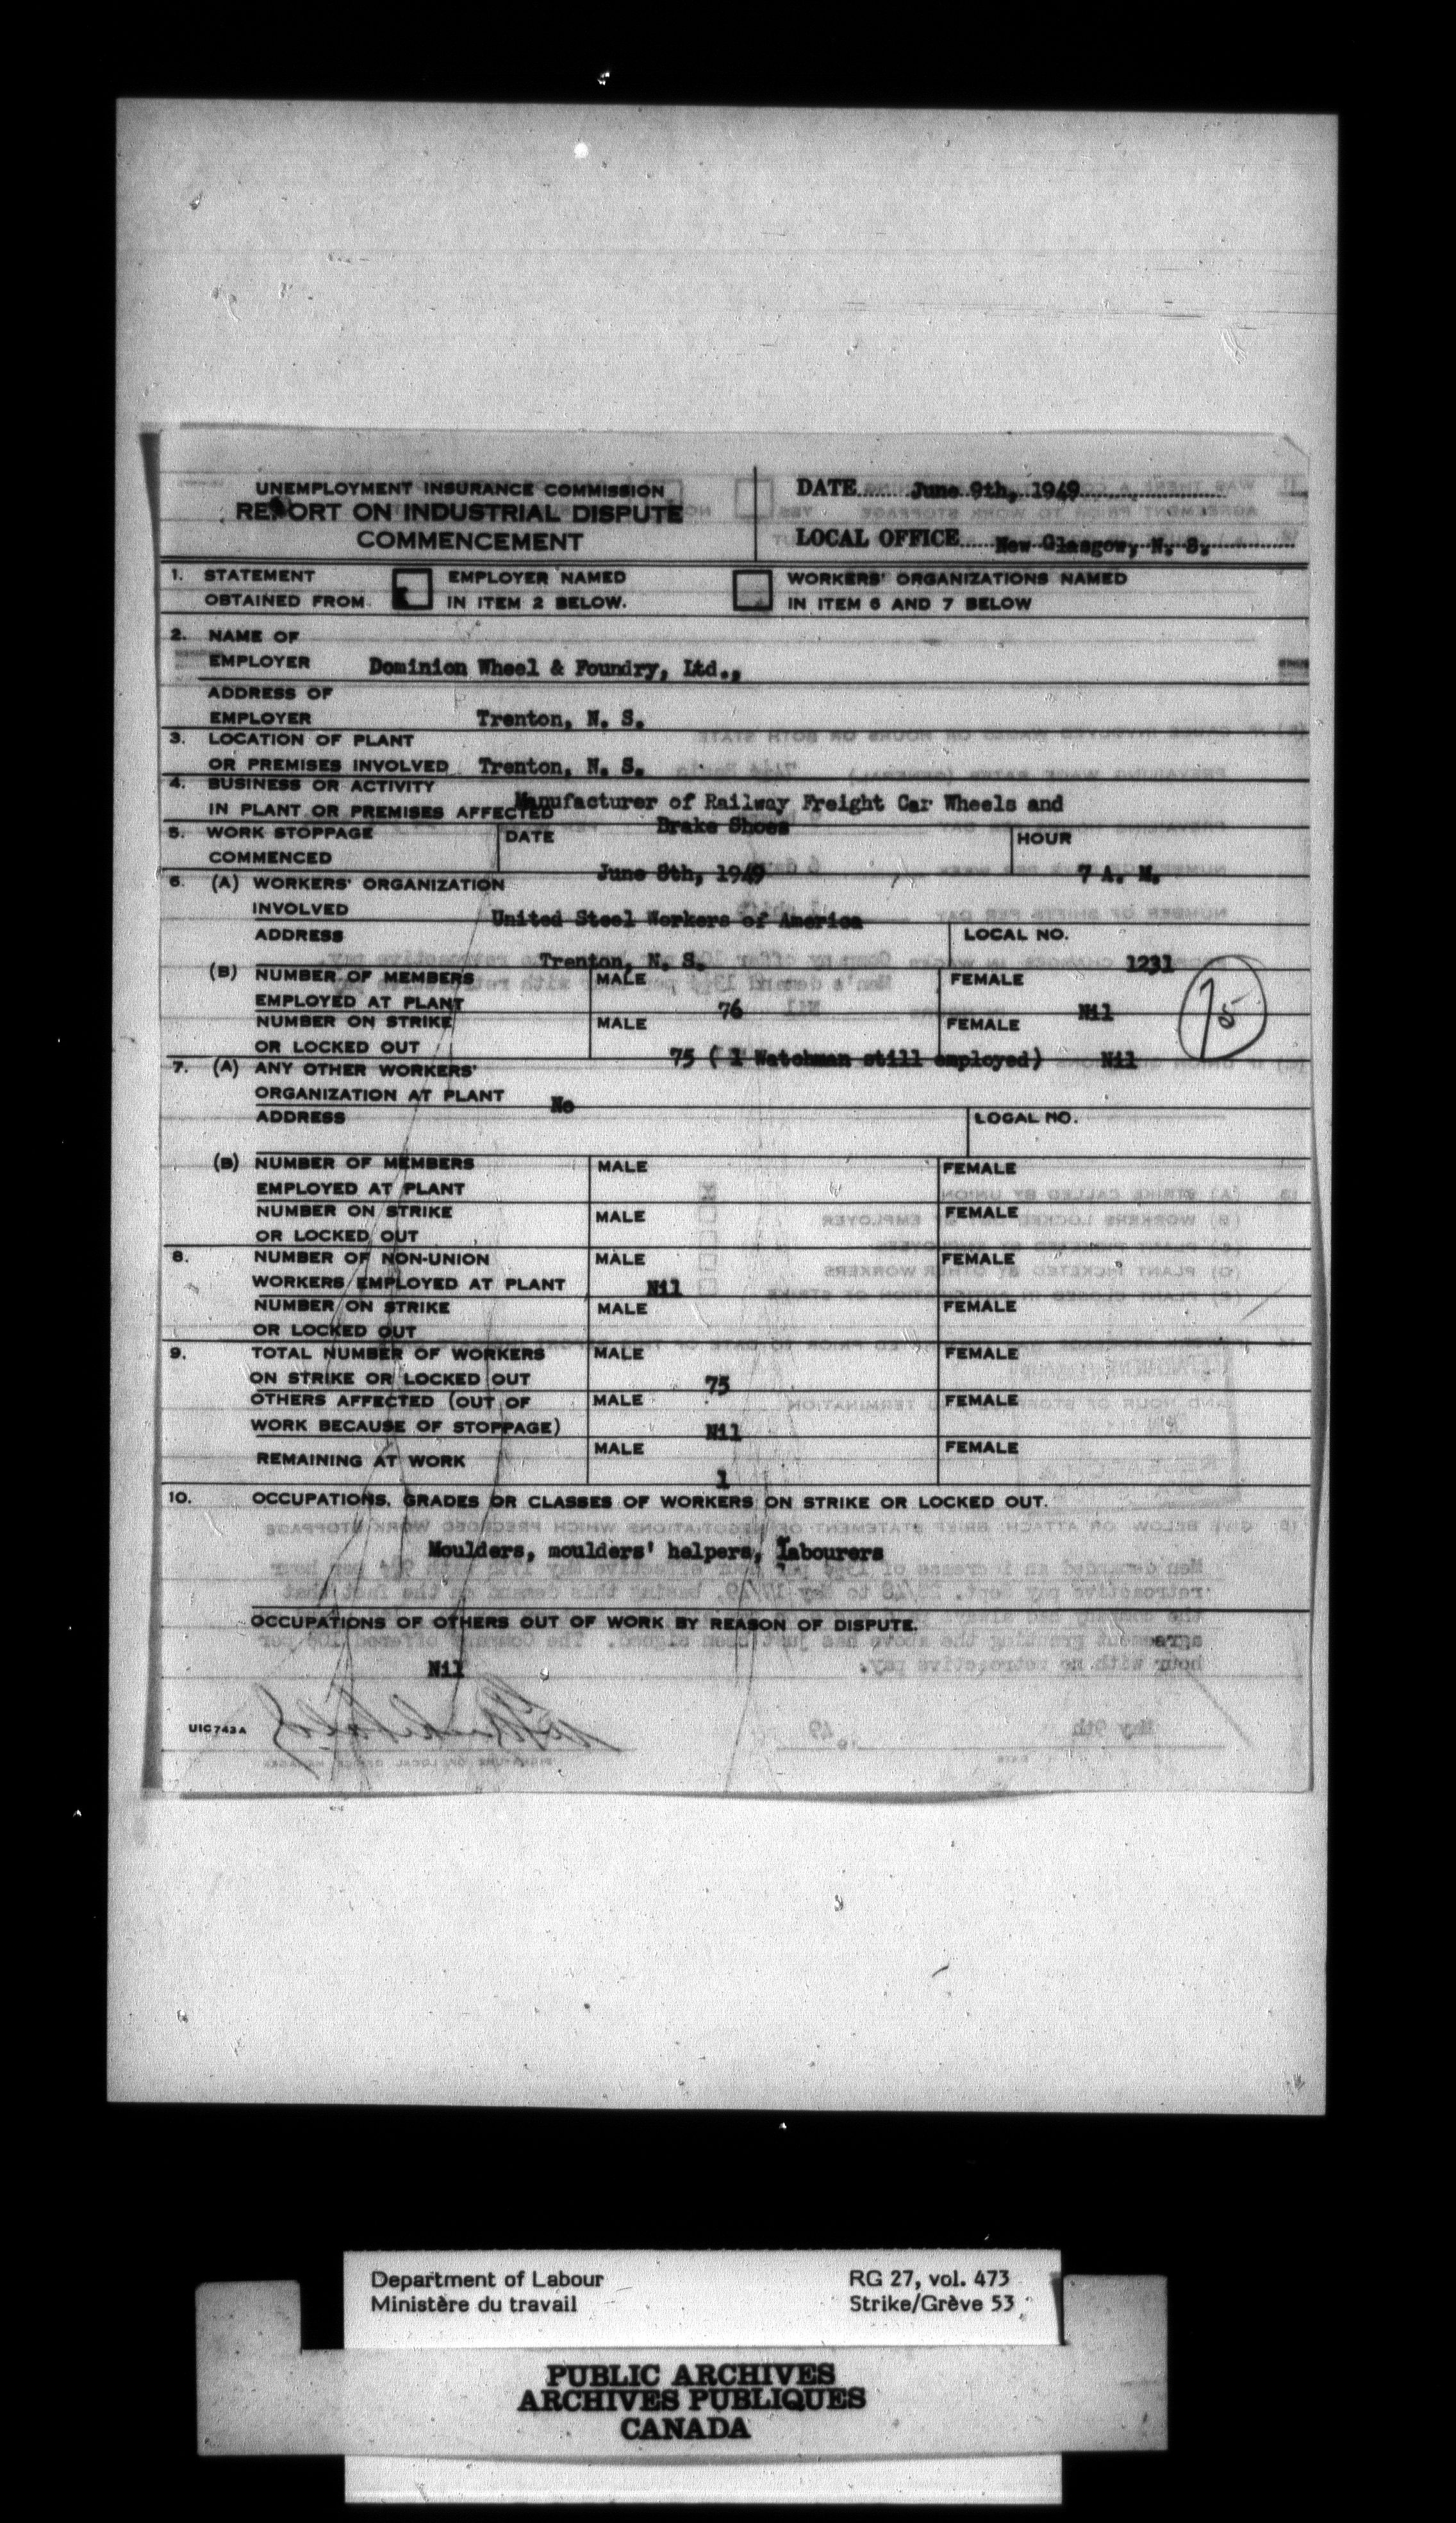 UNEMPLOYMENT INSURANCE COMMISSION
REPORT ON INDUSTRIAL DISPUTE
COMMENCEMENT
DATE June 9th, 1949
LOCAL OFFICE New Glasgow, N. S.
1. STATEMENT OBTAINED FROM
EMPLOYER NAMED IN ITEM 2 BELOW.
WORKERS' ORGANIZATIONS NAMED IN ITEM 6 AND 7 BELOW
2. NAME OF
EMPLOYER Dominion Wheel & Foundry, Ltd.,
ADDRESS OF
EMPLOYER Trenton, N. S.
3. LOCATION OF PLANT
OR PREMISES INVOLVED Trenton, N. S.
4. BUSINESS OR ACTIVITY
IN PLANT OR PREMISES AFFECTED Manufacturer of Railway Freight Car Wheels and
Brake Shoes
5. WORK STOPPAGE DATE HOUR
COMMENCED June 8th, 1949 7 A. M.
6. (A) WORKERS' ORGANIZATION
INVOLVED United Steel Workers of America
ADDRESS LOCAL NO.
Trenton, N. S. 1231
(B) NUMBER OF MEMBERS MALE FEMALE
EMPLOYED AT PLANT 76 Nil
75
NUMBER ON STRIKE MALE FEMALE
OR LOCKED OUT 75 ( 1 Watchman still employed) Nil
7. (A) ANY OTHER WORKERS'
ORGANIZATION AT PLANT No
ADDRESS LOCAL NO.
(B) NUMBER OF MEMBERS MALE FEMALE
EMPLOYED AT PLANT
NUMBER ON STRIKE MALE FEMALE
OR LOCKED OUT
8. NUMBER OF NON-UNION MALE FEMALE
WORKERS EMPLOYED AT PLANT Nil
NUMBER ON STRIKE MALE FEMALE
OR LOCKED OUT
9. TOTAL NUMBER OF WORKERS MALE FEMALE
ON STRIKE OR LOCKED OUT 75
OTHERS AFFECTED (OUT OF MALE FEMALE
WORK BECAUSE OF STOPPAGE) Nil
REMAINING AT WORK MALE FEMALE
1
10. OCCUPATIONS, GRADES OR CLASSES OF WORKERS ON STRIKE OR LOCKED OUT.
Moulders, moulders' helpers, labourers
OCCUPATIONS OF OTHERS OUT OF WORK BY REASON OF DISPUTE.
Nil
UIC 743A
Department of Labour
Ministère du travail
RG 27, vol. 473
Strike/Grève 53
PUBLIC ARCHIVES
ARCHIVES PUBLIQUES
CANADA